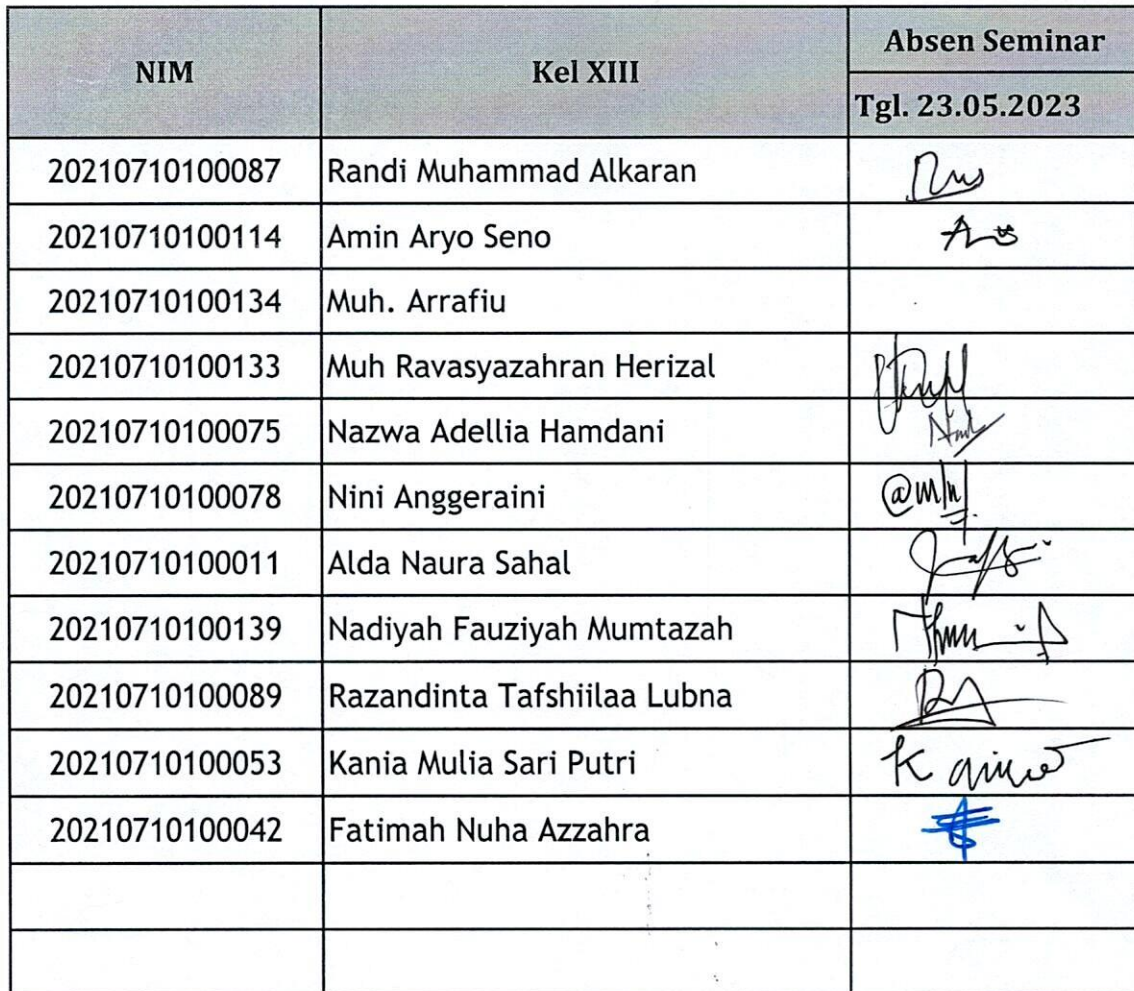 NIM Kel XIII Absen Seminar
Tgl. 23.05.2023
20210710100087 Randi Muhammad Alkaran
20210710100114 Amin Aryo Seno
20210710100134 Muh. Arrafiu
20210710100133 Muh Ravasyazahran Herizal
20210710100075 Nazwa Adellia Hamdani
20210710100078 Nini Anggeraini
20210710100011 Alda Naura Sahal
20210710100139 Nadiyah Fauziyah Mumtazah
20210710100089 Razandinta Tafshiilaa Lubna
20210710100053 Kania Mulia Sari Putri
20210710100042 Fatimah Nuha Azzahra